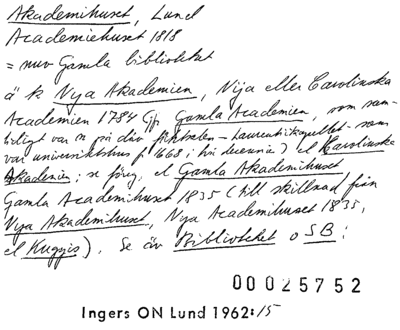 Akademihuset, Lund
Academiehuset 1818
= nuv Gamla biblioteket
ä k Nya Akademien, Nya eller Carolinska
Academien 1784 (jfr Gamla Academien, som sam-
tidigt var n på däv
var universitetshus f 1668 i decennier) el Karolinska
Akademien; se föreg, el Gamla Akademihuset
Gamla Academihuset 1835 (till skillnad från
Nya Akademihuset, Nya Academihuset 1835,
el Kuggis). Se äv Biblioteket o SB:
00025752
Ingers ON Lund 1962:15